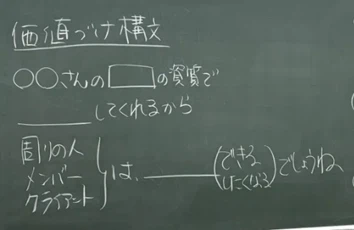 価値づけ構文
○○さんの□の資質で
______してくれるから
周りの人
メンバー
クライアント
は、______(できる したくなる)でしょうね